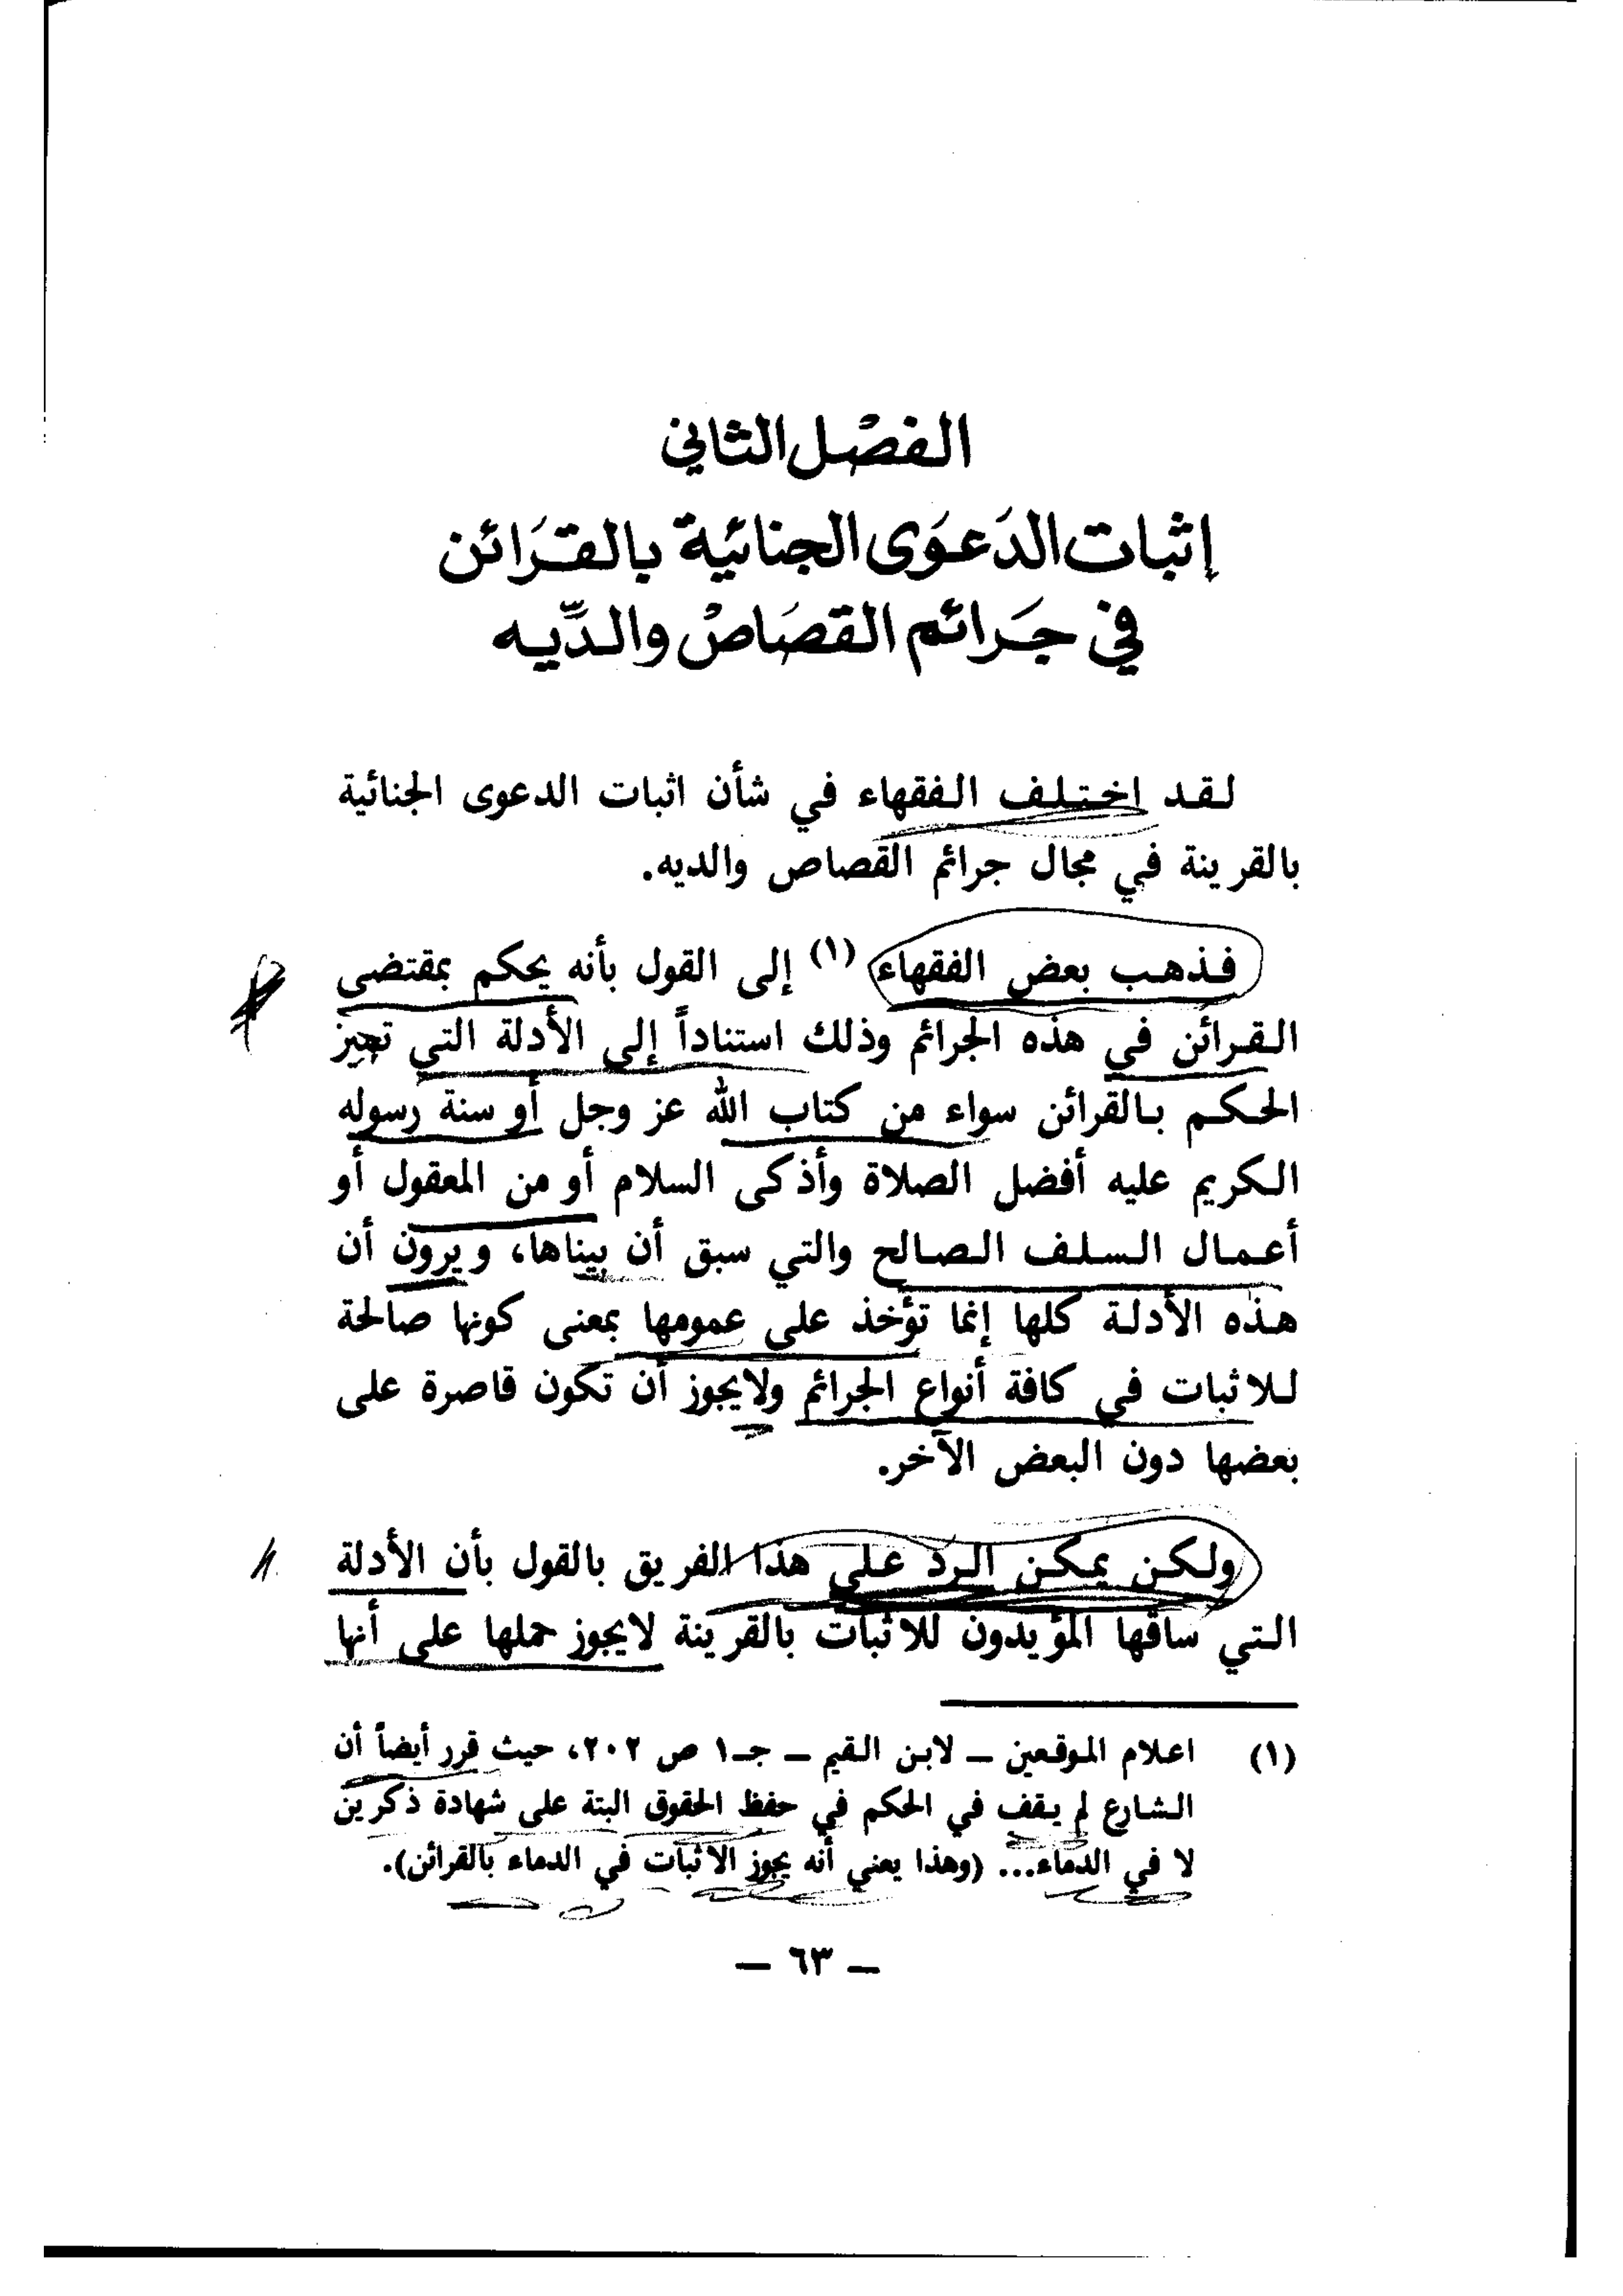 الفصْل الثاني
إثبات الدَعوَى الجنائية بالقرَائن
في جَرائم القصَاصْ والدِّيه
لقد اختلف الفقهاء في شأن اثبات الدعوى الجنائية
بالقرينة في مجال جرائم القصاص والديه.
فذهب بعض الفقهاء (١) إلى القول بأنه يحكم بمقتضى
القرائن في هذه الجرائم وذلك استناداً إلى الأدلة التي تجيز
الحكم بالقرائن سواء من كتاب الله عز وجل أو سنة رسوله
الكريم عليه أفضل الصلاة وأذكى السلام أو من المعقول أو
أعمال السلف الصالح والتي سبق أن بيناها، ويرون أن
هذه الأدلة كلها إنما تؤخذ على عمومها بمعنى كونها صالحة
للاثبات في كافة أنواع الجرائم ولايجوز أن تكون قاصرة على
بعضها دون البعض الآخر.
ولكن يمكن الرد على هذا الفريق بالقول بأن الأدلة
التي ساقها المؤيدون للاثبات بالقرينة لايجوز حملها على أنها
(١) اعلام الموقعين – لابن القيم – جـ١ ص ٢٠٢، حيث قرر أيضاً أن
الشارع لم يقف في الحكم في حفظ الحقوق البتة على شهادة ذكرين
لا في الدماء... (وهذا يعني أنه يجوز الاثبات في الدماء بالقرائن).
– ٦٣ –